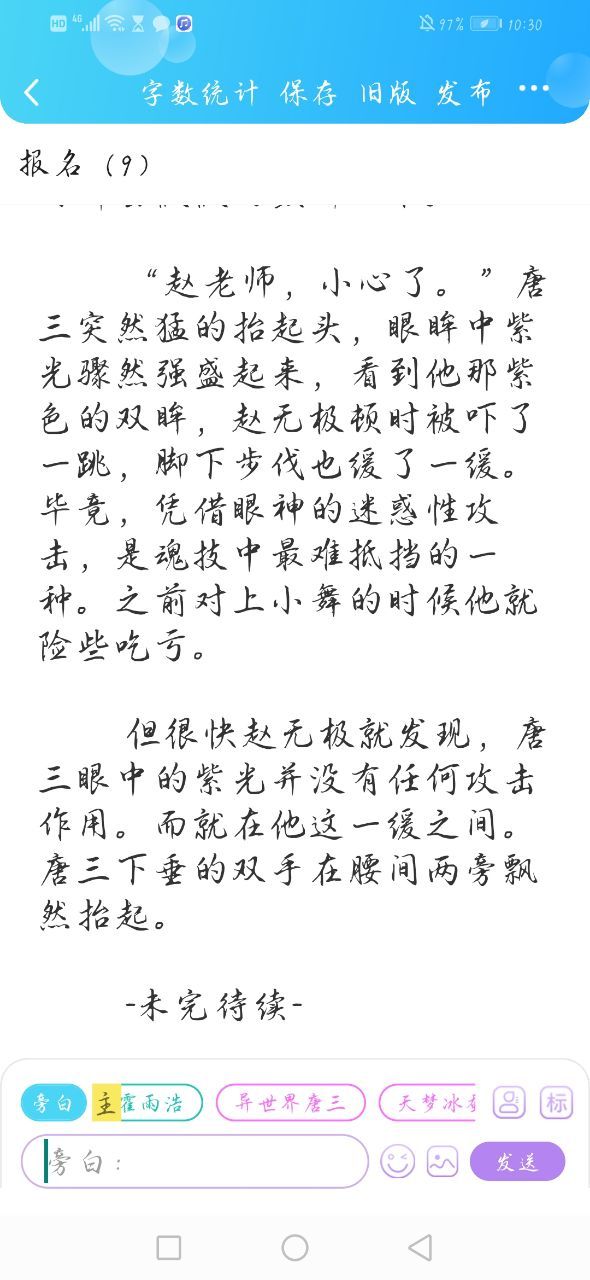 HD 4G 97% 10:30
字数统计 保存 旧版 发布
报名（9）
“赵老师，小心了。”唐
三突然猛的抬起头，眼眸中紫
光骤然强盛起来，看到他那紫
色的双眸，赵无极顿时被吓了
一跳，脚下步伐也缓了一缓。
毕竟，凭借眼神的迷惑性攻
击，是魂技中最难抵挡的一
种。之前对上小舞的时候他就
险些吃亏。
但很快赵无极就发现，唐
三眼中的紫光并没有任何攻击
作用。而就在他这一缓之间。
唐三下垂的双手在腰间两旁飘
然抬起。
-未完待续-
旁白 主 霍雨浩 异世界唐三 天梦冰 标
旁白： 发送